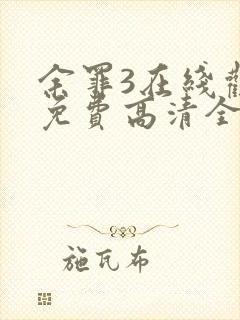 余罪3在线觀
免费高清全
施瓦布